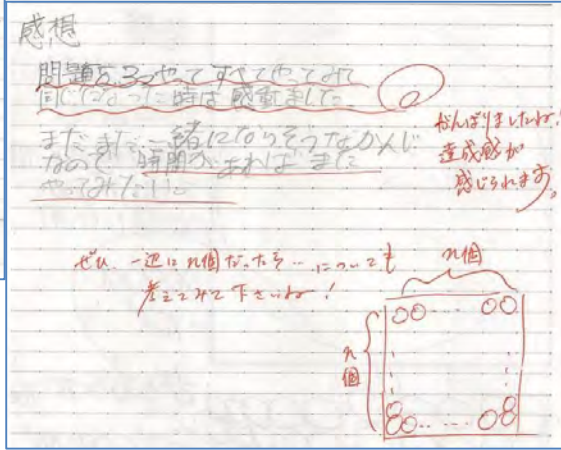 感想
問題を3つやってすべてやってみて
同じになった時は感動しました。
まだまだ一緒になりそうなかんじ
なので時間があればまた
やってみたい。
がんばりましたね!
達成感が
感じられます。
ぜひ、一辺にn個だったら…についても
考えてみて下さいね!
n個
n個